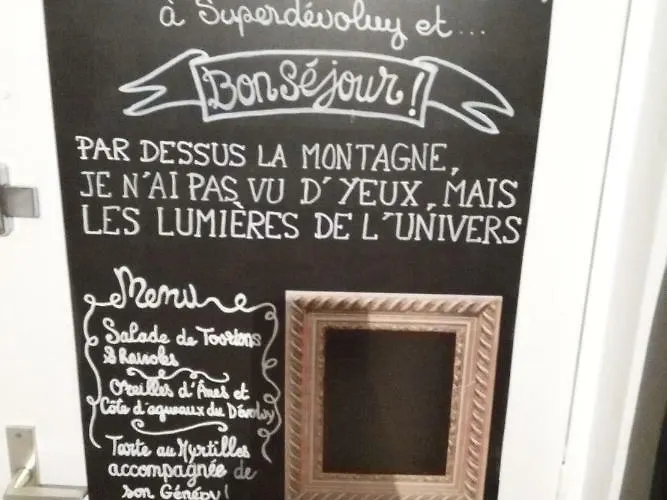 à Superdévoluy et...
Bon Séjour !
PAR DESSUS LA MONTAGNE,
JE N'AI PAS VU D'YEUX, MAIS
LES LUMIÈRES DE L'UNIVERS
Menu
Salade de Tourtons
& Ravioles
Oreilles d'Ânes et
Côte d'agneaux du Dévoluy
Tarte au Myrtilles
accompagnée de
son Génépy !